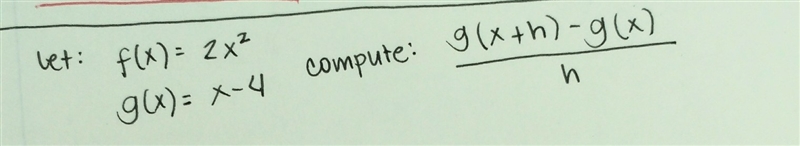 let: f(x) = 2x² compute: g(x+h) - g(x) / h
g(x) = x-4